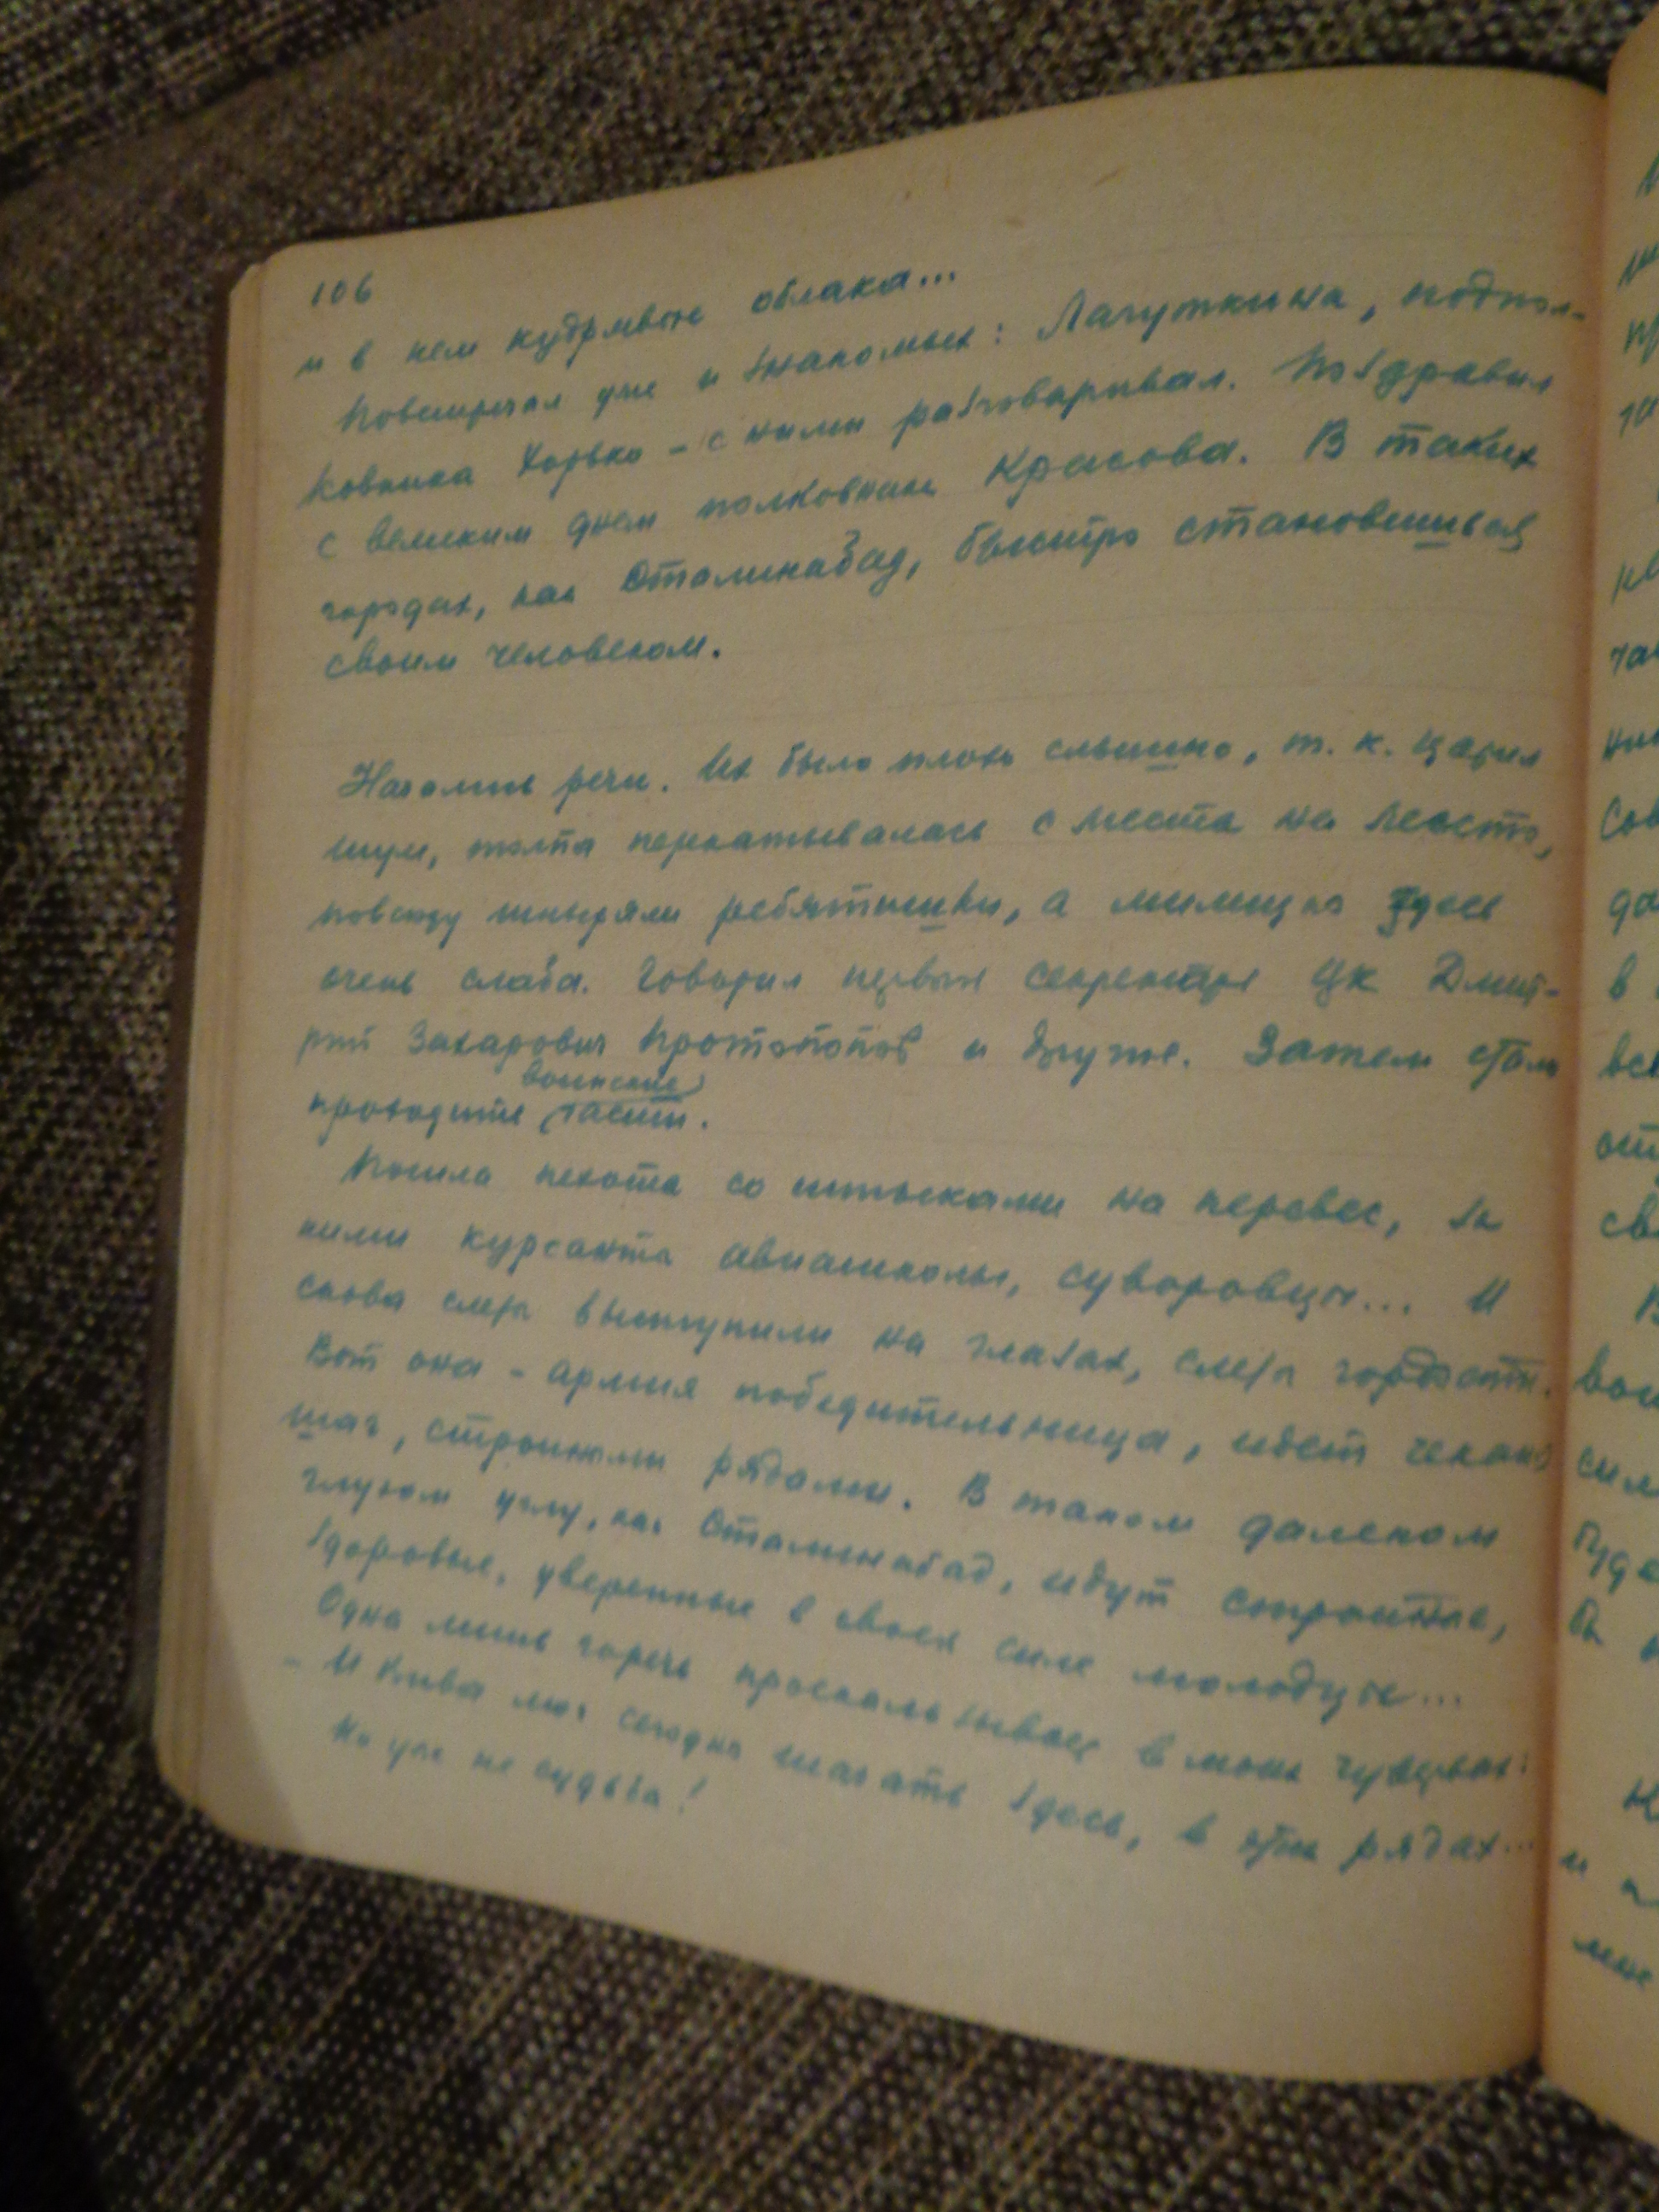 106
и в нем кудрявые облака...
Повстречал уже и знакомых: Лагуткина, подпол-
ковника Хорько - с ними разговаривал. Поздравил
с великим днем полковника Красова. В таких
городах, как Сталинабад, быстро становишься
своим человеком.
Начались речи. Их было плохо слышно, т. к. царил
шум, толпа перекатывалась с места на место,
повсюду шныряли ребятишки, а милиция здесь
очень слаба. Говорил первый секретарь ЦК Дмит-
рий Захарович Протопопов и другие. Затем стали
воинские
проходить части.
Пошла пехота со штыками на перевес, за
ними курсанты авиашколы, суворовцы... И
снова слезы выступили на глазах, слезы гордости.
Вот она - армия победительница, идет чеканя
шаг, стройными рядами. В таком далеком
глухом углу, как Сталинабад, идут
здоровые, уверенные в своей силе молодцы...
Одна лишь горечь проскальзывает в моих чувствах:
- И Кива мог сегодня шагать здесь, в этих рядах...
Но уже не судьба!